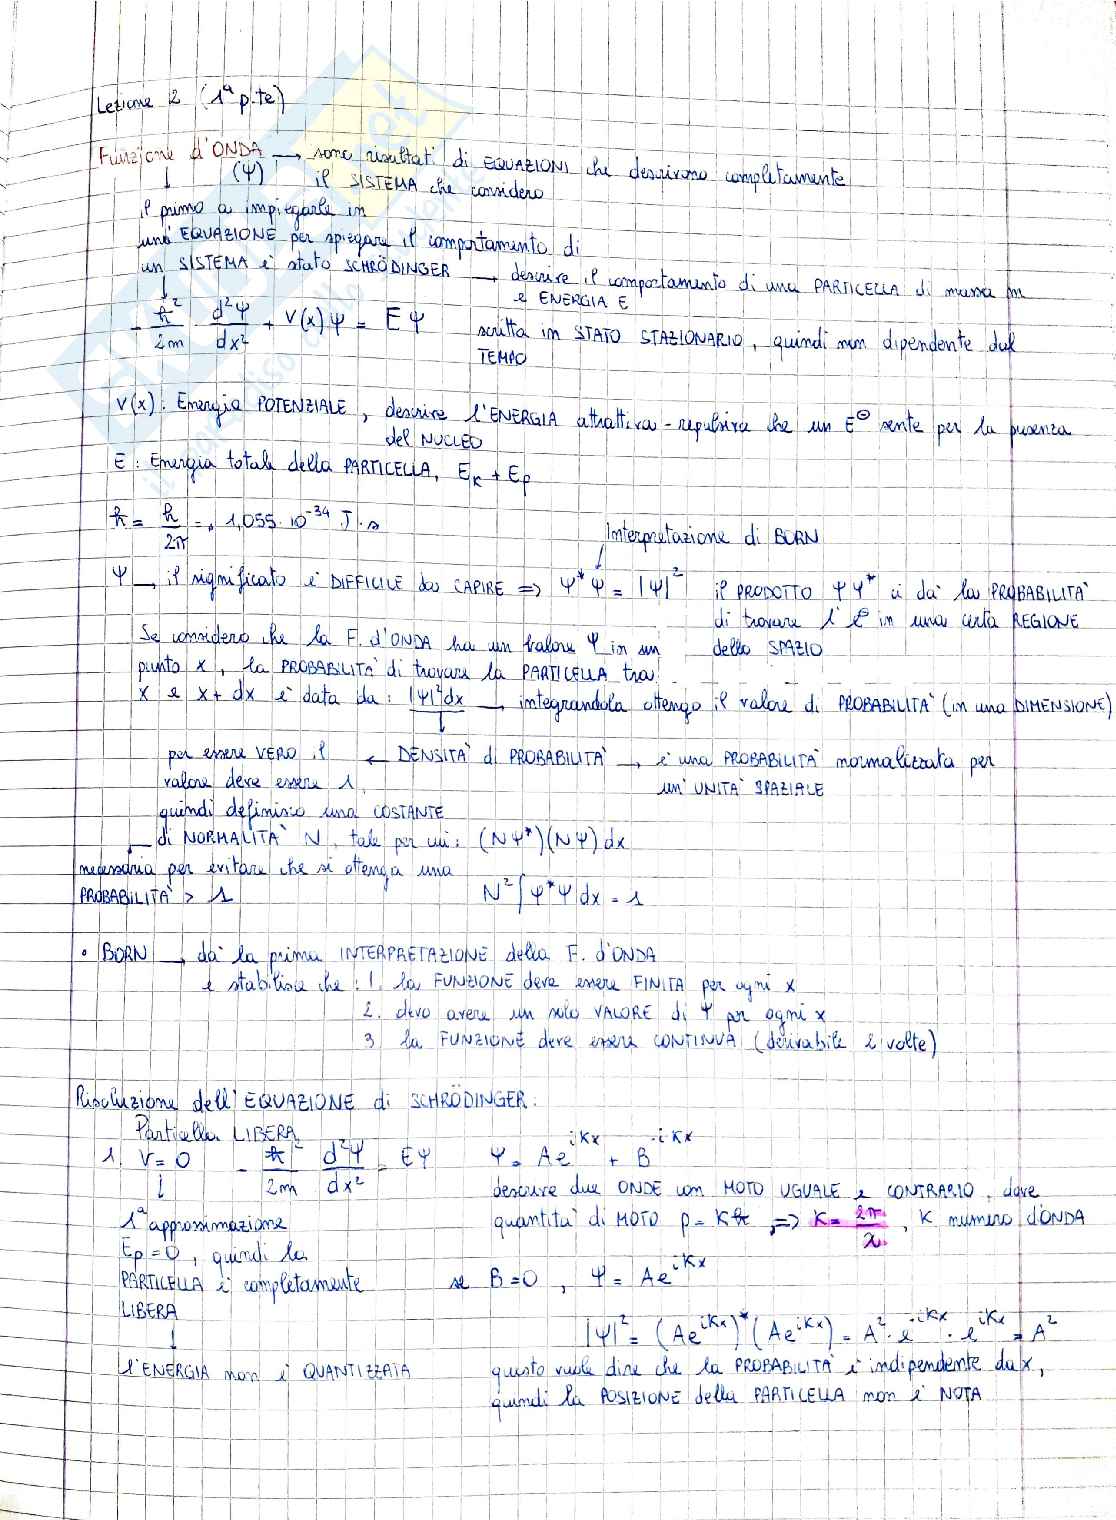 Lezione 2 (1ª p.te)
Funzione d'ONDA → sono risultati di EQUAZIONI che descrivono completamente
(Ψ) il SISTEMA che considero
↓
il primo a impiegarle in
una EQUAZIONE per spiegare il comportamento di
un SISTEMA è stato SCHRÖDINGER → descrive il comportamento di una PARTICELLA di massa m
e ENERGIA E
- ħ²/2m · d²Ψ/dx² + V(x)Ψ = EΨ
scritta in STATO STAZIONARIO, quindi non dipendente dal
TEMPO
V(x): Energia POTENZIALE, descrive l'ENERGIA attrattiva-repulsiva che un E⊖ sente per la presenza
del NUCLEO
E: Energia totale della PARTICELLA, Eκ + Ep
ħ = h/2π = 1,055·10⁻³⁴ J·s
Interpretazione di BORN
Ψ → il significato è DIFFICILE da CAPIRE ⇒ Ψ*Ψ = |Ψ|² il PRODOTTO ΨΨ* ci dà la PROBABILITA'
di trovare l' e⁻ in una certa REGIONE
dello SPAZIO
Se considero che la F. d'ONDA ha un valore Ψ in un
punto x, la PROBABILITA' di trovare la PARTICELLA tra
x e x+dx è data da: |Ψ|²dx → integrandola ottengo il valore di PROBABILITA' (in una DIMENSIONE)
per essere VERO il ← DENSITA' di PROBABILITA' → è una PROBABILITA' normalizzata per
valore deve essere 1, un' UNITA' SPAZIALE
quindi definisco una COSTANTE
di NORMALITA' N, tale per cui: (NΨ*)(NΨ)dx
necessaria per evitare che si ottenga una
PROBABILITA' > 1 N²∫Ψ*Ψdx = 1
• BORN → dà la prima INTERPRETAZIONE della F. d'ONDA
e stabilisce che: 1. la FUNZIONE deve essere FINITA per ogni x
2. devo avere un solo VALORE di Ψ per ogni x
3. la FUNZIONE deve essere CONTINUA (derivabile 2 volte)
Risoluzione dell'EQUAZIONE di SCHRÖDINGER:
Particella LIBERA
1. V=0 - ħ²/2m d²Ψ/dx² = EΨ Ψ = Ae^iKx + B^-iKx
↓ descrive due ONDE con MOTO UGUALE e CONTRARIO, dove
1ª approssimazione quantità di MOTO p = Kħ ⇒ K = 2π/λ, K numero d'ONDA
Ep=0, quindi la
PARTICELLA è completamente se B=0, Ψ = Ae^iKx
LIBERA
↓ |Ψ|² = (Ae^iKx)*(Ae^iKx) = A²·e^-iKx·e^iKx = A²
l'ENERGIA non è QUANTIZZATA questo vuole dire che la PROBABILITA' è indipendente da x,
quindi la POSIZIONE della PARTICELLA non è NOTA